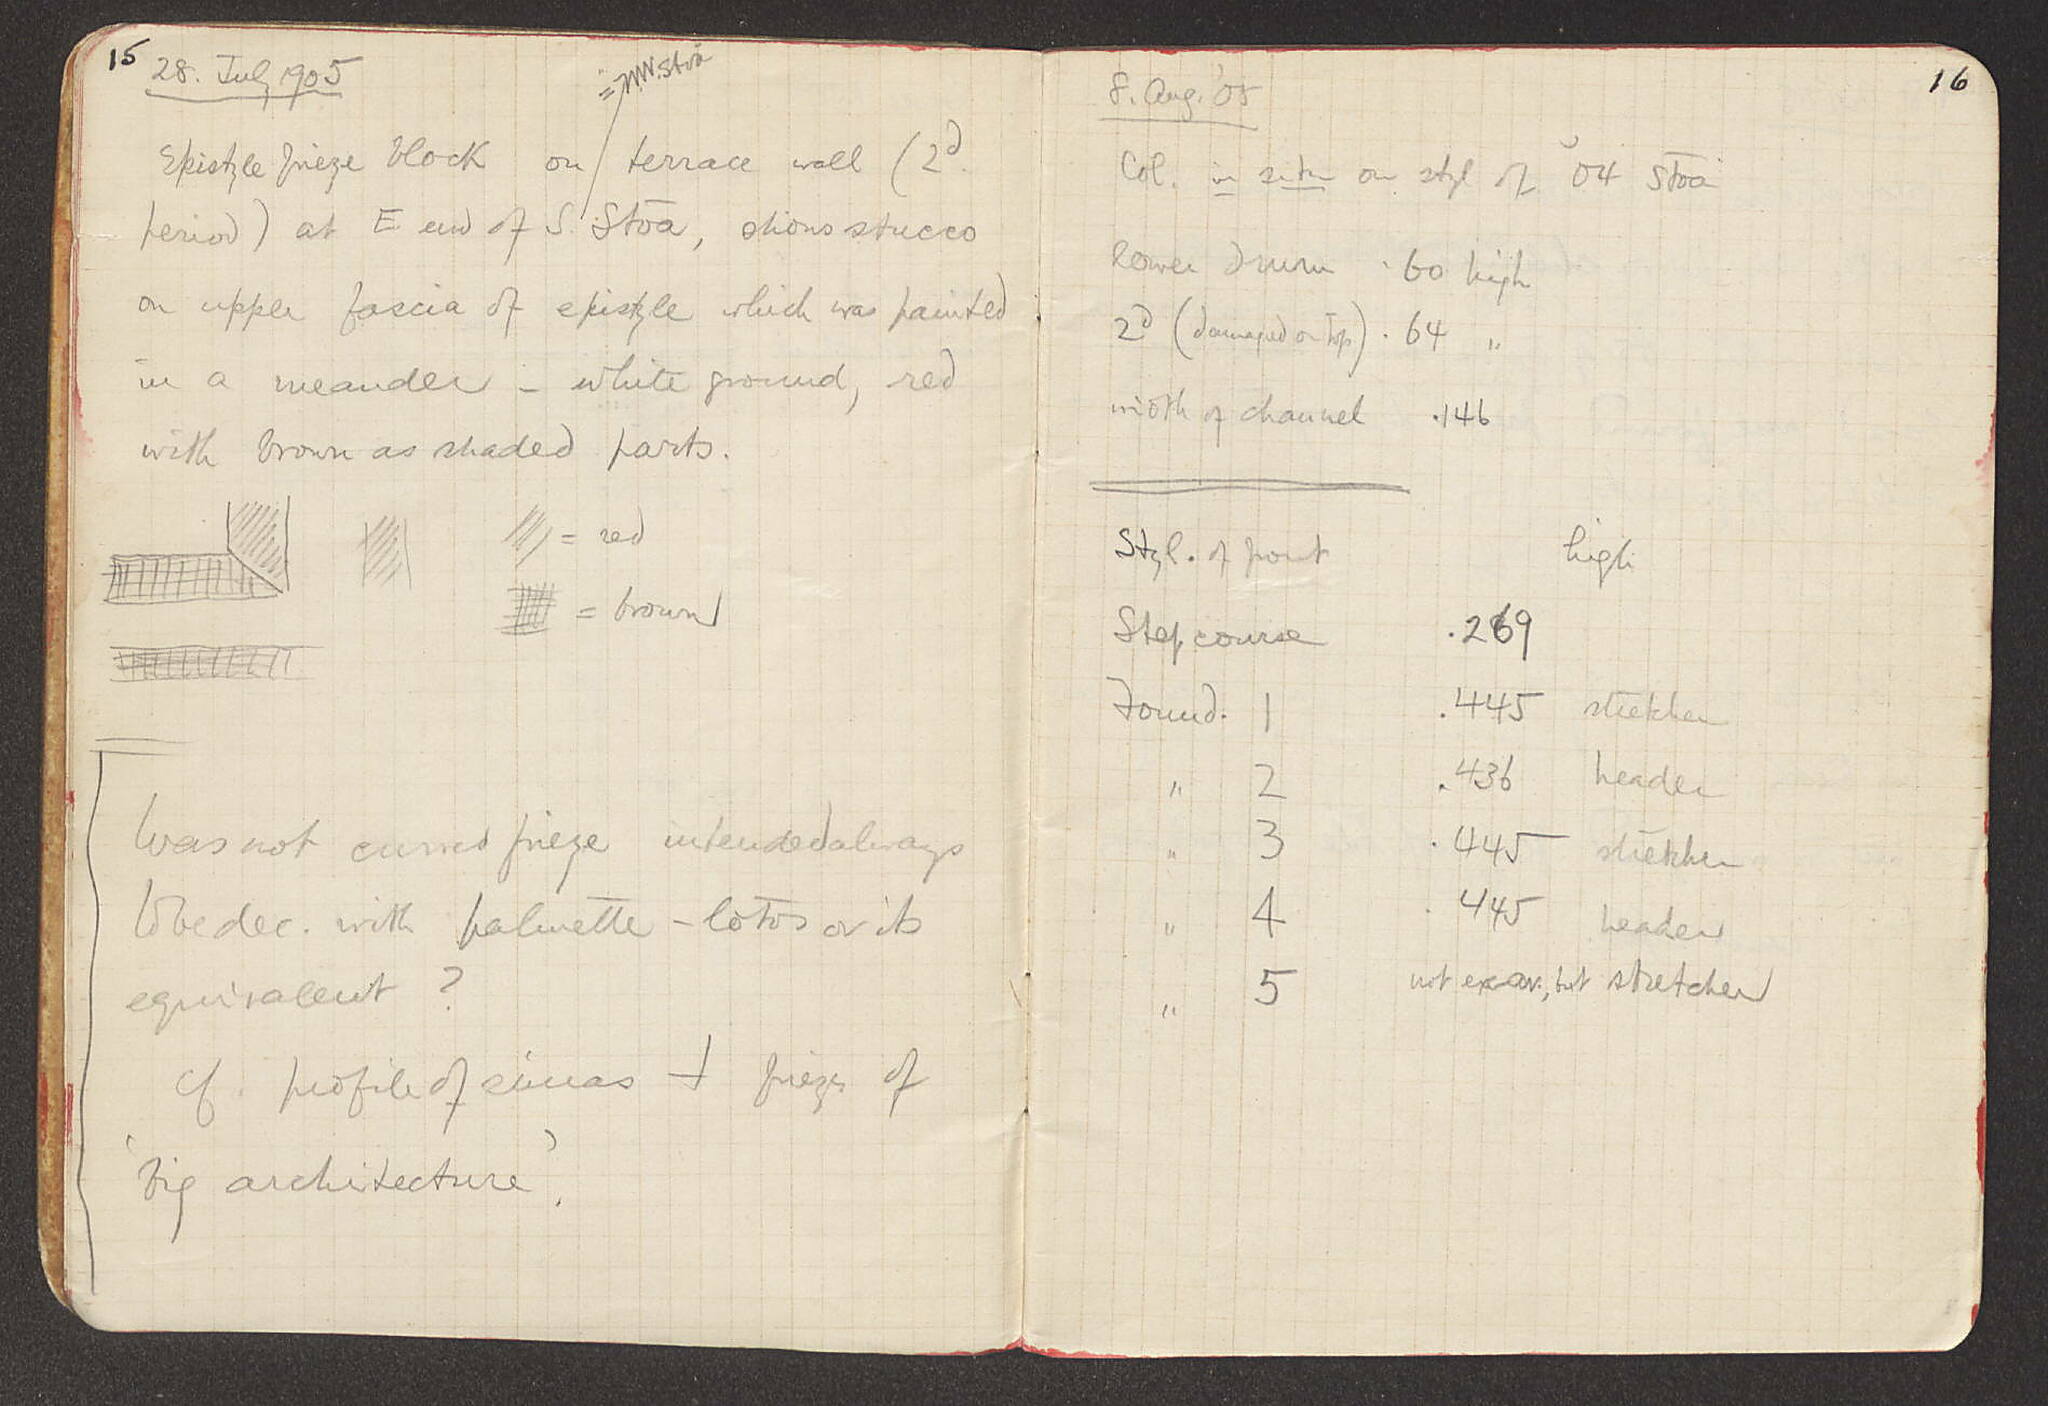 15
28. July 1905
= NW. Stoa
Epistyle frieze block on terrace wall (2d.
period) at E end of S. Stoa, shows stucco
on upper fascia of epistyle which was painted
in a meander – white ground, red
with brown as shaded parts.
= red
= brown
Was not curved frieze intended always
to be dec. with palmette – lotos or its
equivalent ?
cf. profile of simas + friezes of
'big architecture'.
16
8. Aug. '05
Col. in situ on styl of '04 Stoa
lower drum .60 high
2d (damaged on top) .64 "
width of channel .146
Styl. of front high
Step course .269
Found. 1 .445 stretcher
" 2 .436 header
" 3 .445 stretcher
" 4 .445 header
" 5 not excav., but stretcher